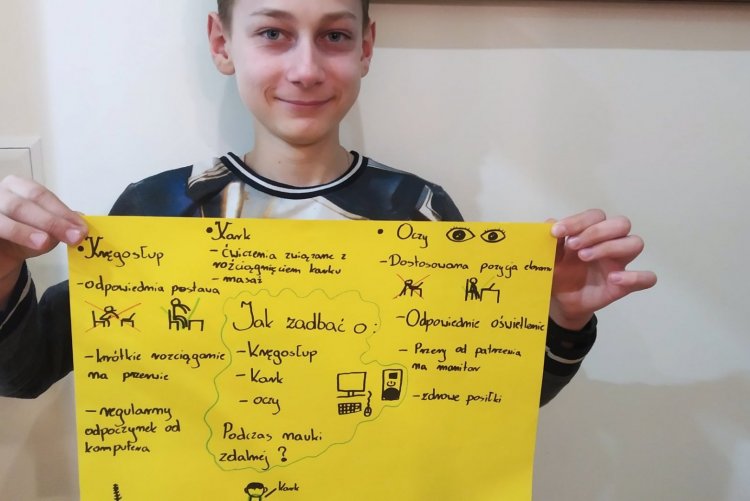 • Kręgosłup
-odpowiednia postawa
-krótkie rozciąganie
na przerwie
-regularny
odpoczynek od
komputera
• Kark
- ćwiczenia związane z
rozciągnięciem karku
- masaż
Jak zadbać o:
- Kręgosłup
- Kark
- oczy
Podczas nauki
zdalnej?
• Oczy
-Dostosowana pozycja ekranu
-Odpowiednie oświetlenie
- Przerwy od patrzenia
na monitor
-zdrowe posiłki
kark